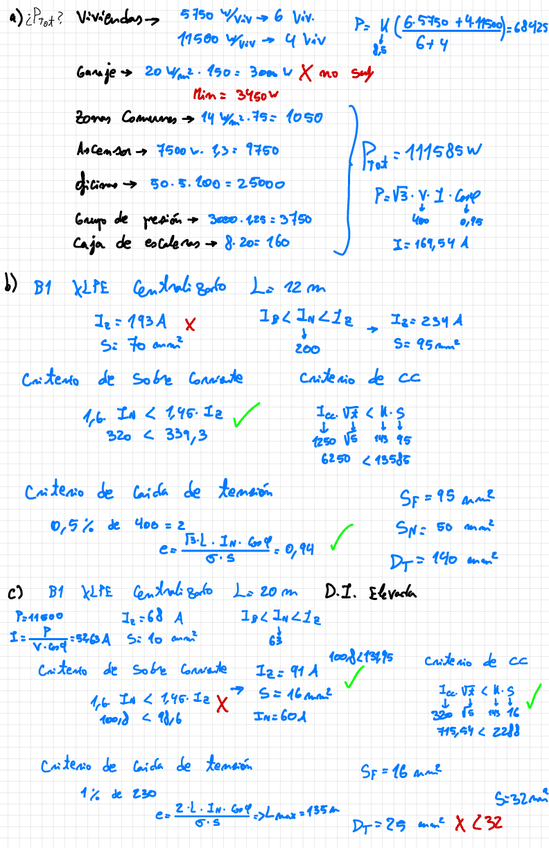 a) ¿P Tot? Viviendas → 5750 W/viv → 6 Viv.
11500 W/viv → 4 Viv
P = K (6·5750 + 4·11500 / 6+4) = 68425
8,5
Garaje → 20 W/m²·150 = 3000 W X no suf
Min = 3450 W
Zonas Comunes → 14 W/m²·75 = 1050
Ascensor → 7500 W·1,3 = 9750
Oficinas → 50·5·100 = 25000
Grupo de presión → 3000·1,25 = 3750
Caja de escaleras → 8·20 = 160
P Tot = 111585 W
P = √3·V·I·Cosφ
400 0,95
I = 169,54 A
b) B1 XLPE Centralizado L = 12 m
Iz = 193 A X
S = 70 mm²
IB < IN < Iz → Iz = 234 A
200 S = 95 mm²
Criterio de Sobre Corriente
1,6·IN < 1,45·Iz ✓
320 < 339,3
Criterio de CC
Icc·√t < K·S
1250 √5 143 95
6250 < 13585
Criterio de Caida de tensión
0,5% de 400 = 2
e = √3·L·IN·Cosφ / σ·S = 0,94 ✓
SF = 95 mm²
SN = 50 mm²
DT = 140 mm²
c) B1 XLPE Centralizado L = 20 m D.I. Elevada
P = 11500 Iz = 68 A IB < IN < Iz
I = P / V·Cosφ = 52,63 A S = 10 mm² 63
Criterio de Sobre Corriente
1,6·IN < 1,45·Iz X →
100,8 < 98,6
Iz = 91 A
S = 16 mm²
IN = 60 A
100,8 < 131,95 ✓
Criterio de CC
Icc·√t < K·S ✓
320 √5 143 16
715,54 < 2288
Criterio de Caida de tensión
1% de 230
e = 2·L·IN·Cosφ / σ·S => Lmax = 135 m
SF = 16 mm²
S = 32 mm²
DT = 25 mm² X < 32